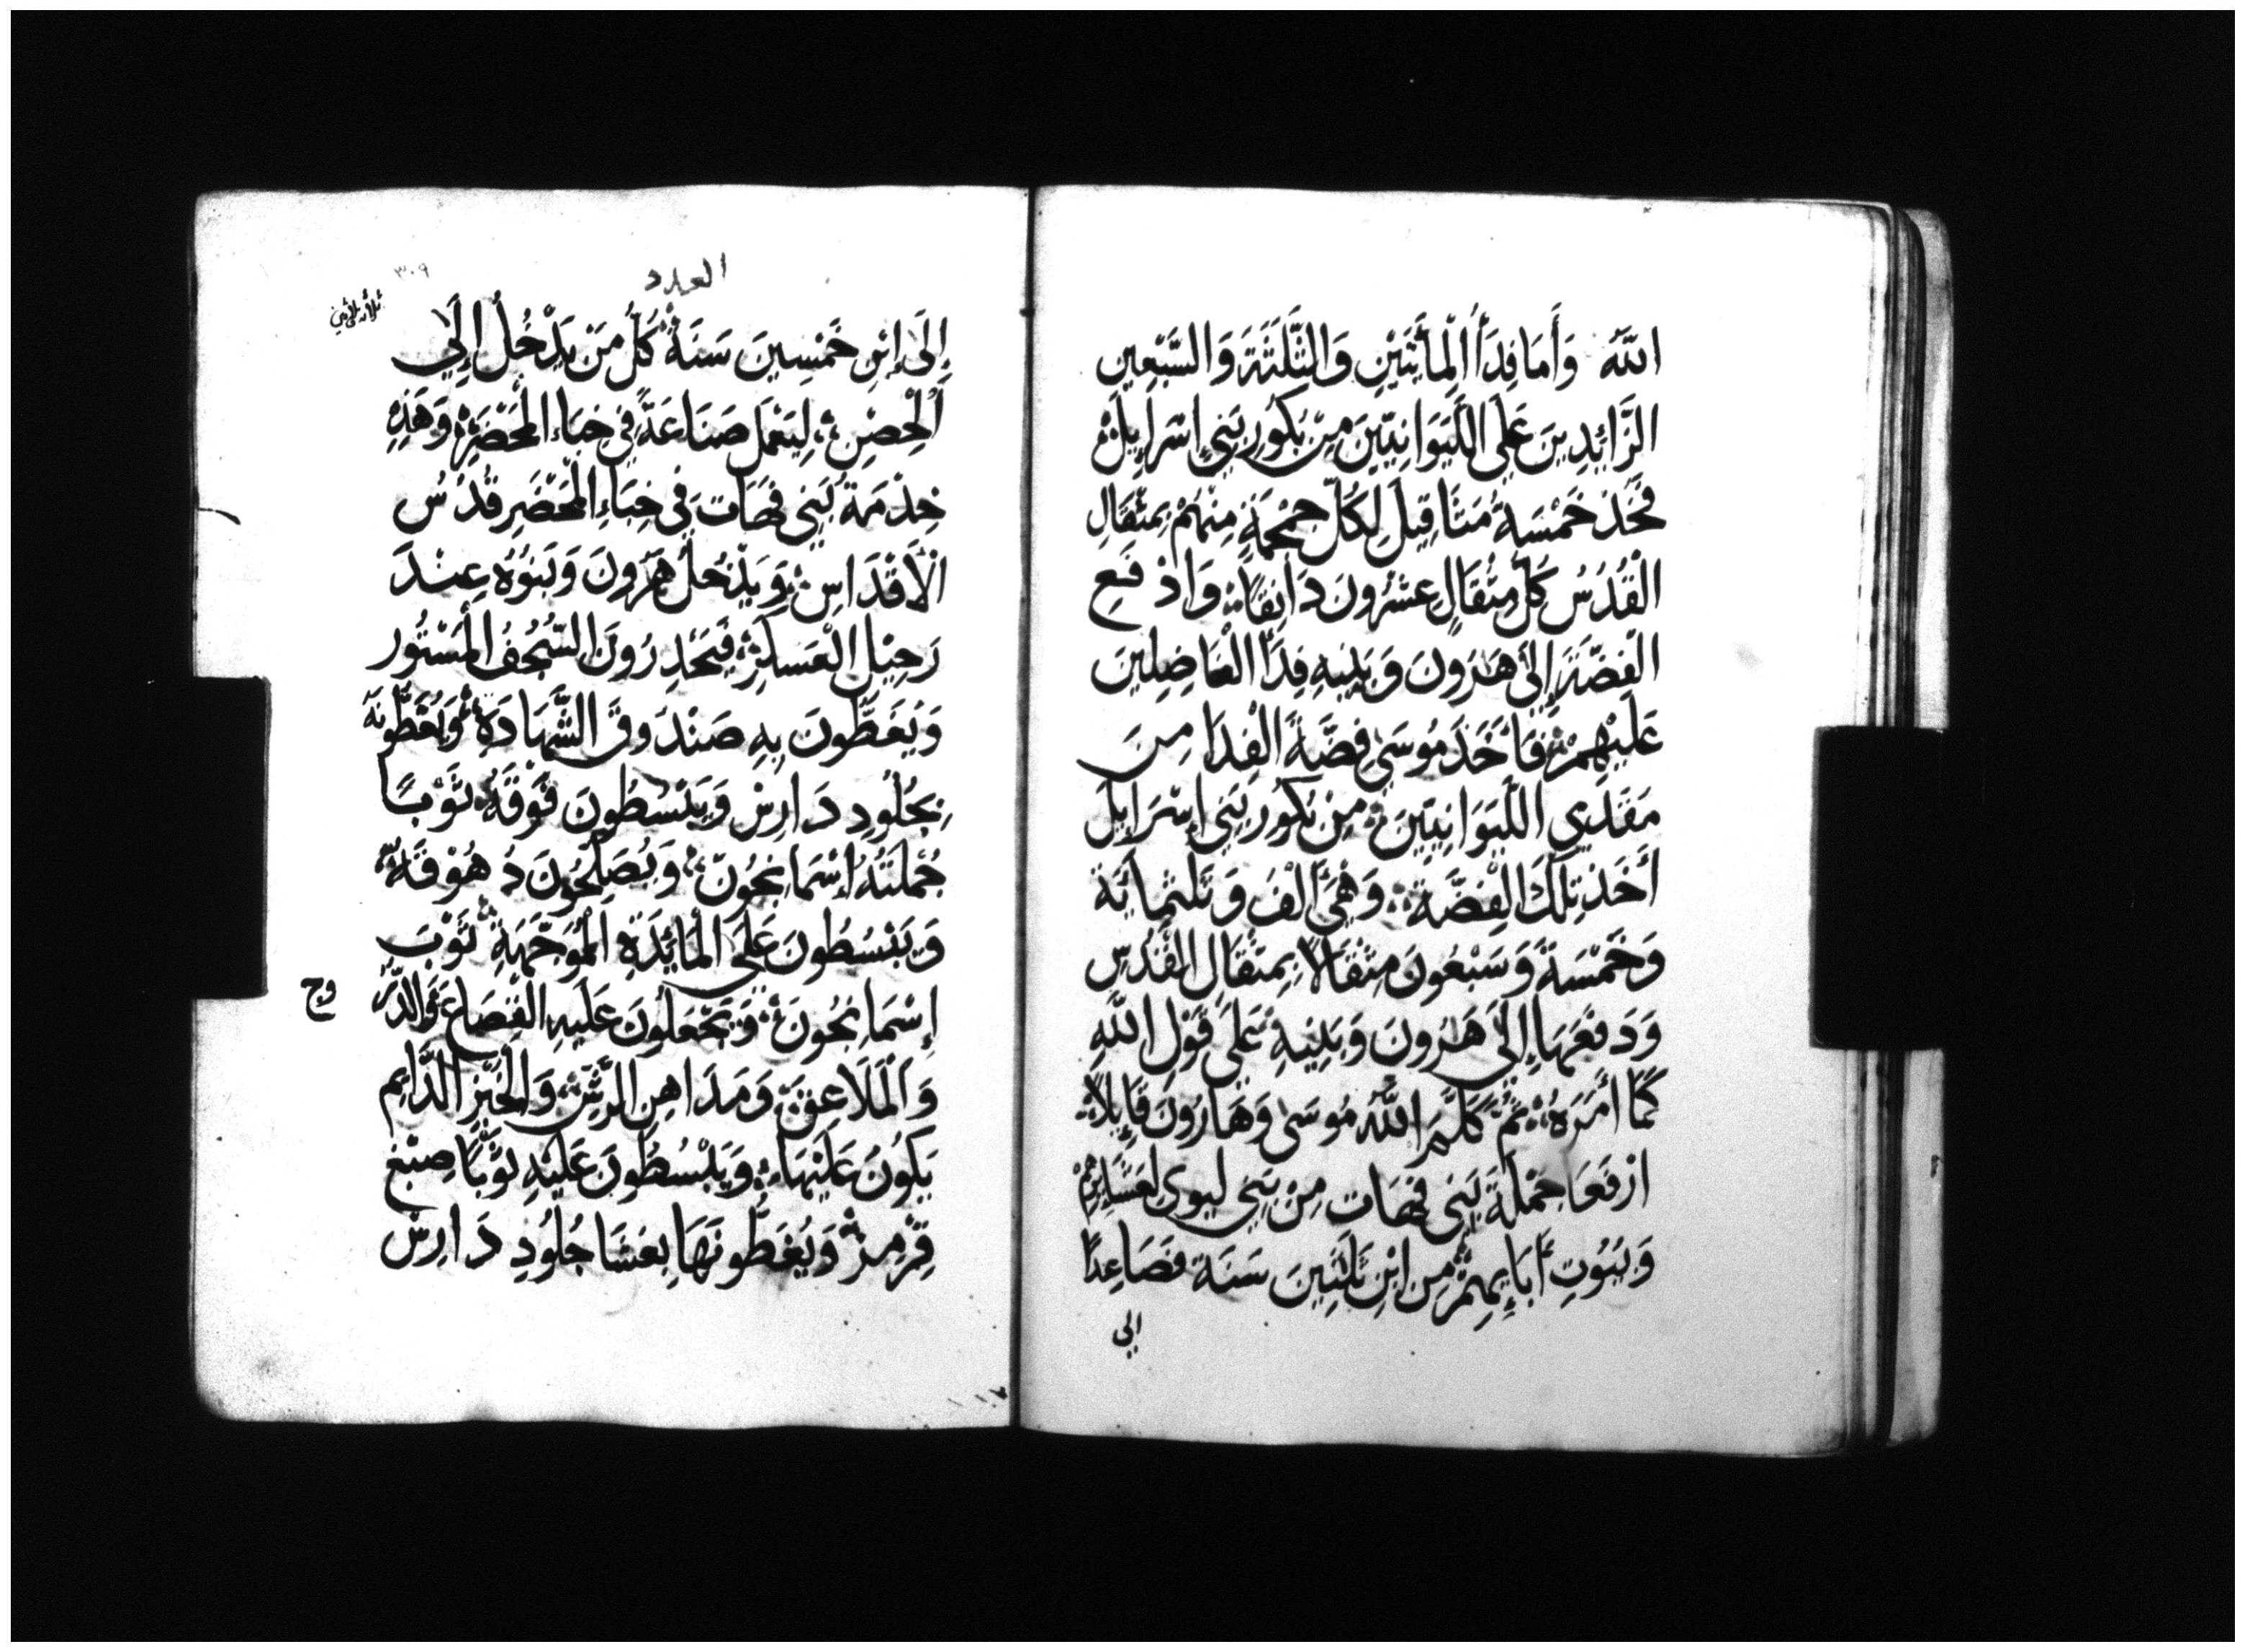 اللّٰه وَأَمَا فِدَأُ الْمِأَتَيْنِ وَالثَّلَثَةَ وَالسَّبْعِين
الزَّائِدِينَ عَلَي اللَّيَوَانِيّينَ مِنْ بَكُورِ بَنِي إِسْرَايِلَ
فَخُذْ خَمْسَةَ مَثَاقِيلَ لِكُلّ جُمْجُمَةٍ مِنْهُمْ بِمِثْقَالِ
الْقُدُسُ كُلُّ مِثْقَالٍ عِشْرُونَ دَانِقًا وَادْفَعِ
الْفِضَّةَ إِلَيٰ هَرُونَ وَبَنِيهِ فِدَأَ الْفَاضِلِينَ
عَلَيْهِمْ فَأَخَذَ مُوسَيٰ فِضَّةَ الْفِدَا مِنَ
مَفْدِيي اللَّيَوَانِيّينَ مِنْ بُكُورِ بَنِي إِسْرَايِلَ
أَخَذَ تِلْكَ الْفِضَّةَ وَهِيَ أَلْفَ وَثَلَثمِائَة
وَخَمْسَةً وَسَبْعُونَ مِثْقَالاً بِمِثْقَال الْقُدُسِ
وَدَفَعَهَا إِلَيٰ هَرُونَ وَبَنِيهِ عَلَي قَوْلِ اللّٰهِ
كَمَا أَمَرَهُ ثُمَّ كَلَّمَ اللّٰهُ مُوسَىٰ وَهَارُونَ قَايِلاً
ارْفَعَا جُمْلَةَ بَنِي قهَات مِنْ بَنِي لِيوِي لِعَشَايِرِهِمْ
وَبُيُوتِ أَبَايِهِمْ مِن ابْنِ ثَلَثِينَ سَنَة فَصَاعِدًا
الي
العدد
٣٠٩
إِلَىٰ إِبْنِ خَمْسِينَ سَنَةً كُلُّ مَنْ يَدْخُلُ إِلَي
الْحِصْنِ لِيَعْمَلَ صَنَاعَةً فِي خِبَاءِ الْمَحْضَرِ وَهَذِهِ
خِدْمَةُ بَنِي قهَات فِي خِبَاءِ الْمَحْضَرِ قُدْسُ
الْأَقْدَاسِ وَيَدْخُلُ هَرُونَ وَبَنُوهُ عِنْدَ
رَحِيْلِ الْعَسْكَرِ فَيَحْدِرُونَ السّجُفُ الْمَسْتُور
وَيُغَطُّونَ بِهِ صَنْدُوقَ الشَّهَادَةِ وَيُغَطُّونَهُ
بِجُلُودِ دَارِسْ وَيَبْسُطُونَ فَوْقَهُ ثَوْبًا
جُمْلَتُهُ إِسْمَانجُونْ وَيُصْلِحُونَ دُهُوقَهُ
وَيَبْسُطُونَ عَلَي الْمَايِدَةِ الْمُوَجَّهَةِ ثَوْبَ
إِسْمَانجُونَ وَيَجْعَلُونَ عَلَيهِ الْقِصَاعَ وَالدّرَ
وج
وَالْمَلَاعِقَ وَمَدَاهِنِ الرَّشِ وَالْخُبْزِ الدَّايِم
يَكُونُ عَلَيْهَا وَيَبْسُطُونَ عَلَيْهِ ثَوْبًا صِبْغ
قِرْمِزْ وَيُغَطُّونَهَا بِغِشَا جُلُودِ دَارِسْ